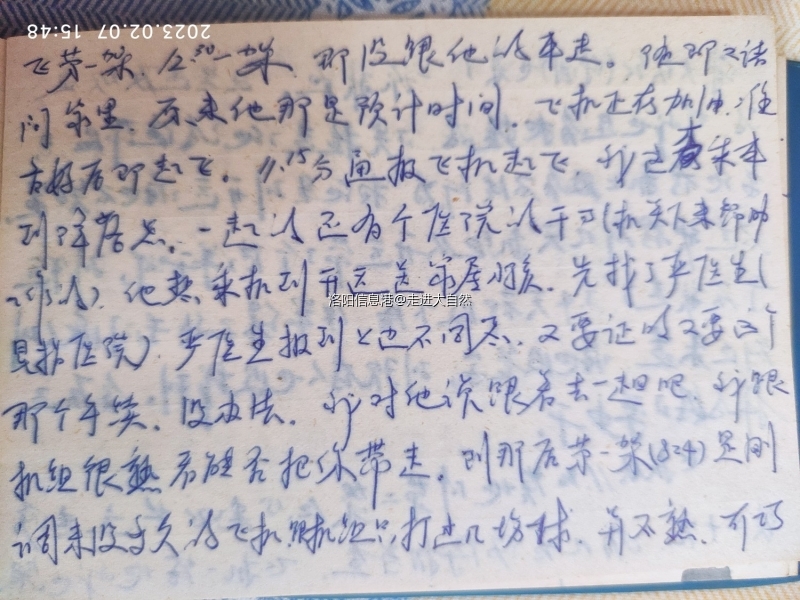 2023.02.07 15:48
飞第一架，12:30一架，那没跟他的车走。随即又请
问家里，原来他那是预计时间，飞机还在加油，准
备好后即起飞。11.15分通报飞机起飞，我这才乘车
到降落点。一起的还有个医院的干部(机关下来帮助
工作的)，他想乘机到开远送家属小孩。先找了严医生(
具指医院)，严医生报到上边不同意，又要证明又要这个
那个手续。没办法，我对他说跟着去一趟吧，我跟
机组很熟看能否把你带走。到那后第一架(824)是刚
调来没多久的飞机跟机组只打过几场球，并不熟，可巧
洛阳信息港@走进大自然